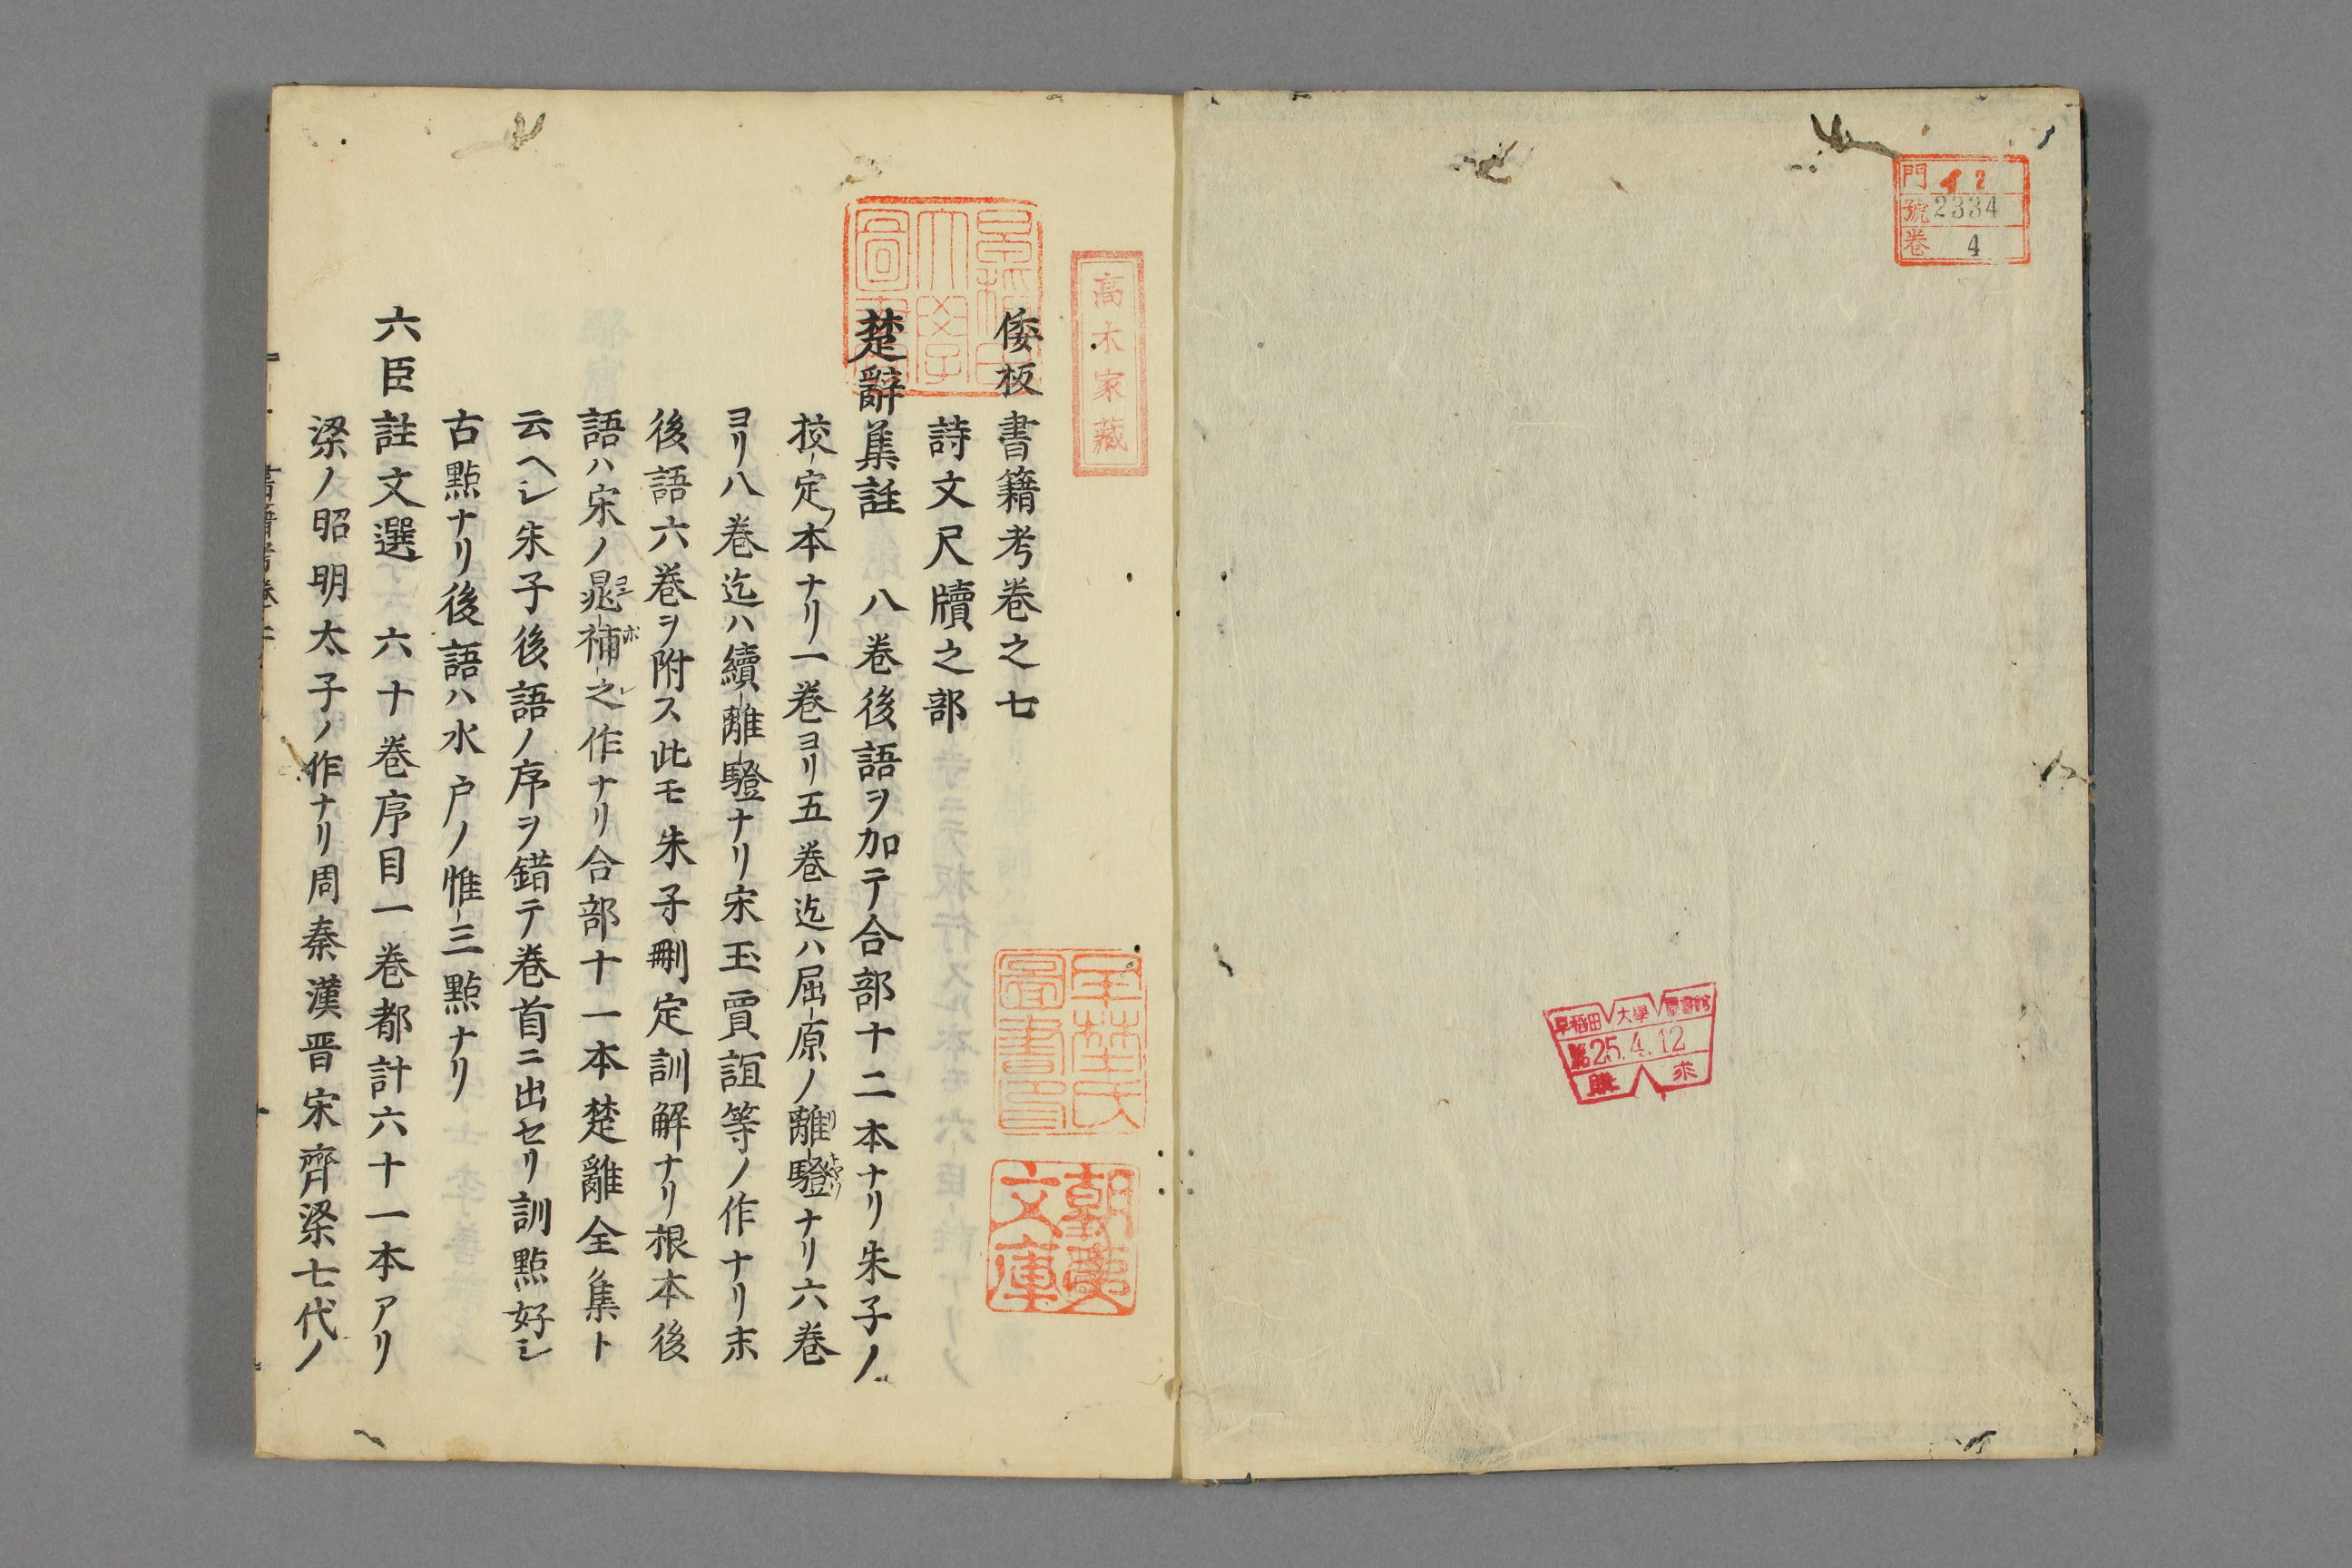 門 イ2
號 2334
巻 4
早稻田大學圖書館
昭25.4.12
購 求
高木家藏
朝夷文庫
倭板書籍考卷之七
詩文尺牘之部
楚辭集註 八巻後語ヲ加テ合部十二本ナリ朱子ノ
挍定ノ本ナリ一巻ヨリ五巻迄ハ屈原ノ離騷ナリ六巻
ヨリ八巻迄ハ續離騷ナリ宋玉賈誼等ノ作ナリ末
後語六巻ヲ附ス此モ朱子刪定訓解ナリ根本後
語ハ宋ノ晁補之作ナリ合部十一本楚離全集ト
云ヘシ朱子後語ノ序ヲ錯テ巻首ニ出セリ訓點好シ
古點ナリ後語ハ水戸ノ惟三點ナリ
六臣註文選 六十巻序目一巻都計六十一本アリ
梁ノ昭明太子ノ作ナリ周秦漢晋宋齊梁七代ノ